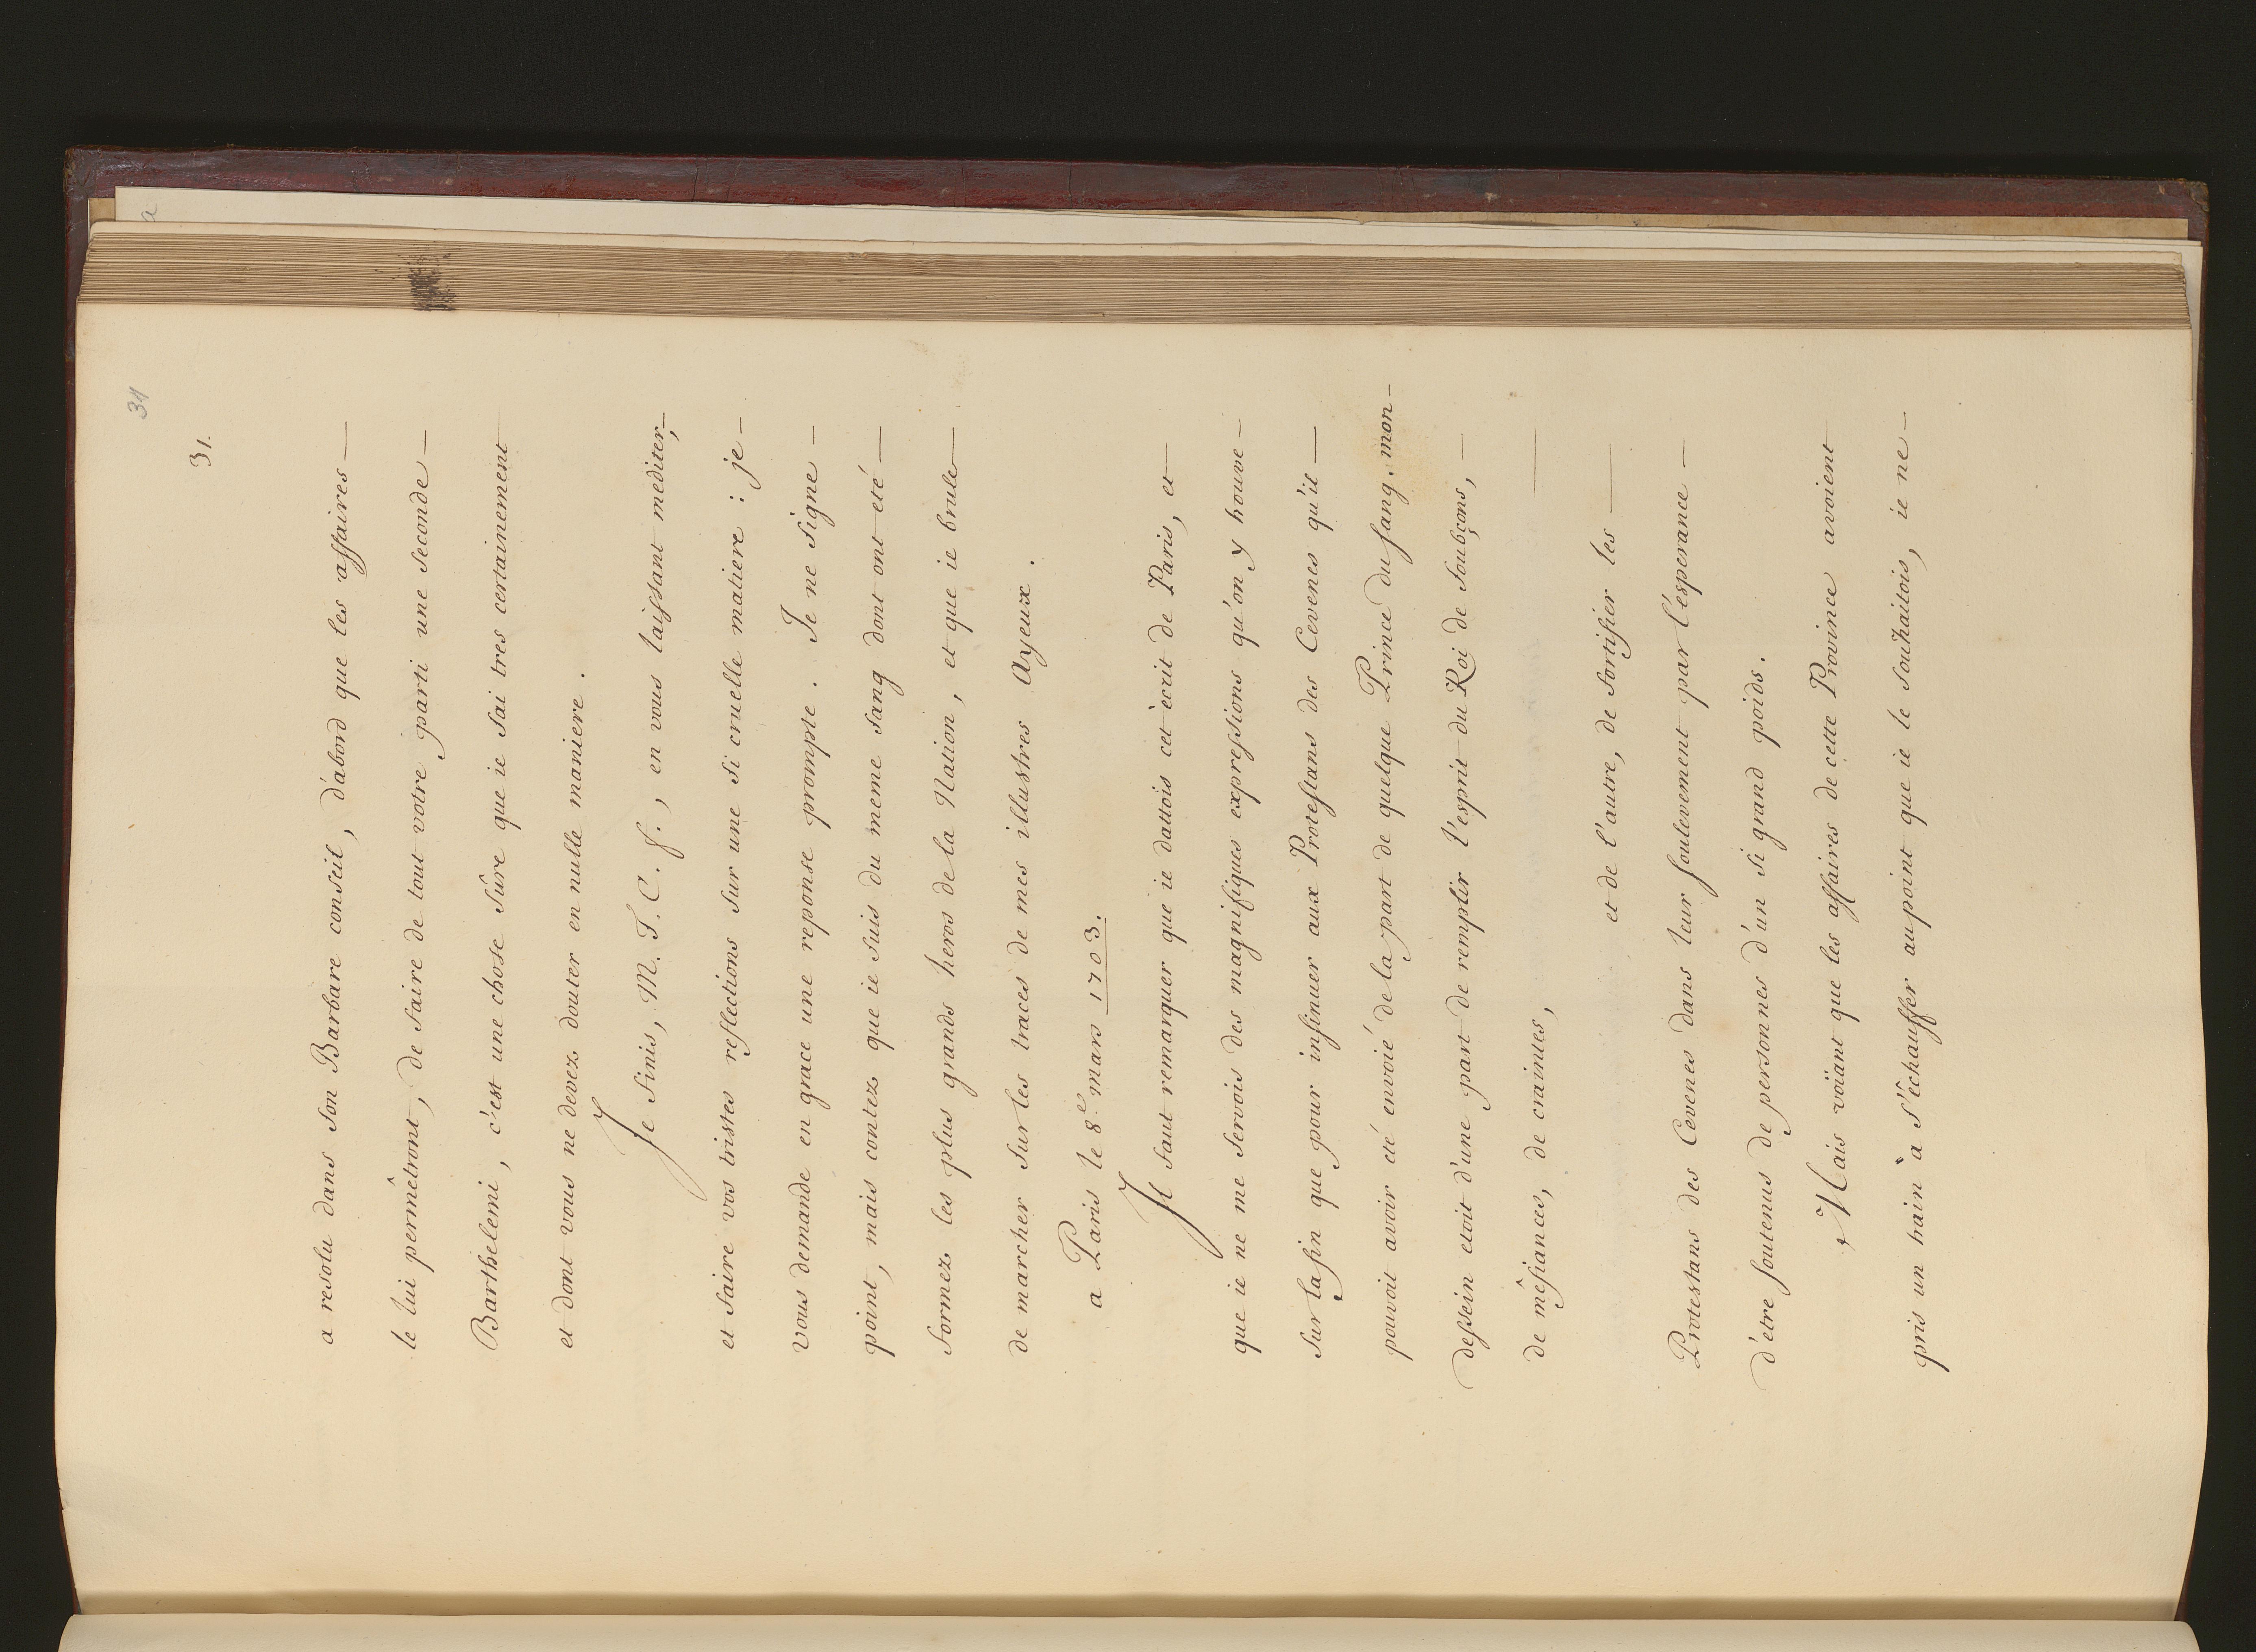 31
31.
a resolu dans son Barbare conseil, d'abord que les affaires —
le lui permêtront, de faire de tout votre parti une seconde —
Barthelemi, c'est une chose sûre que ie sai tres certainement
et dont vous ne devez douter en nulle maniere.
Je finis, M. T. C. f., en vous laissant mediter, —
et faire vos tristes reflections sur une si cruelle matiere : je —
vous demande en grace une reponse prompte. Je ne signe —
point, mais contez que ie suis du meme sang dont ont eté —
formez les plus grands heros de la Nation, et que ie brule —
de marcher sur les traces de mes illustres Ayeux.
a Paris le 8e. mars 1703.
Il faut remarquer que ie dattois cet ècrit de Paris, et —
que ie ne me servois des magnifiques expressions qu'on y trouve —
sur la fin que pour insinuer aux Protestans des Cevenes qu'il —
pouvoit avoir eté envoié de la part de quelque Prince du sang. mon -
dessein etoit d'une part de remplir l'esprit du Roi de soubçons, —
de mêfiances, de craintes, —
et de l'autre, de fortifier les —
Protestans des Cevenes dans leur soulevement par l'esperance —
d'être soutenus de personnes d'un si grand poids.
Mais voïant que les affaires de cette Province avoient
pris un train à s'èchauffer au point que ie le souhaitois, ie ne —